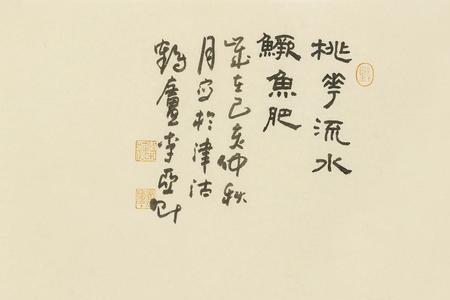 桃華流水
鱖魚肥
歲在己亥仲秋
月寫於津沽
鶴廬李亞